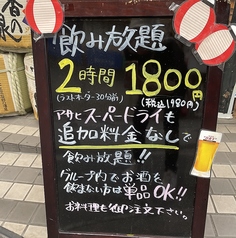 飲み放題
2時間 1800円
(ラストオーダー30分前) (税込1980円)
アサヒスーパードライも
追加料金なしで
飲み放題!!
グループ内でお酒を
飲まない方は単品OK!!
お料理も御注文下さい。